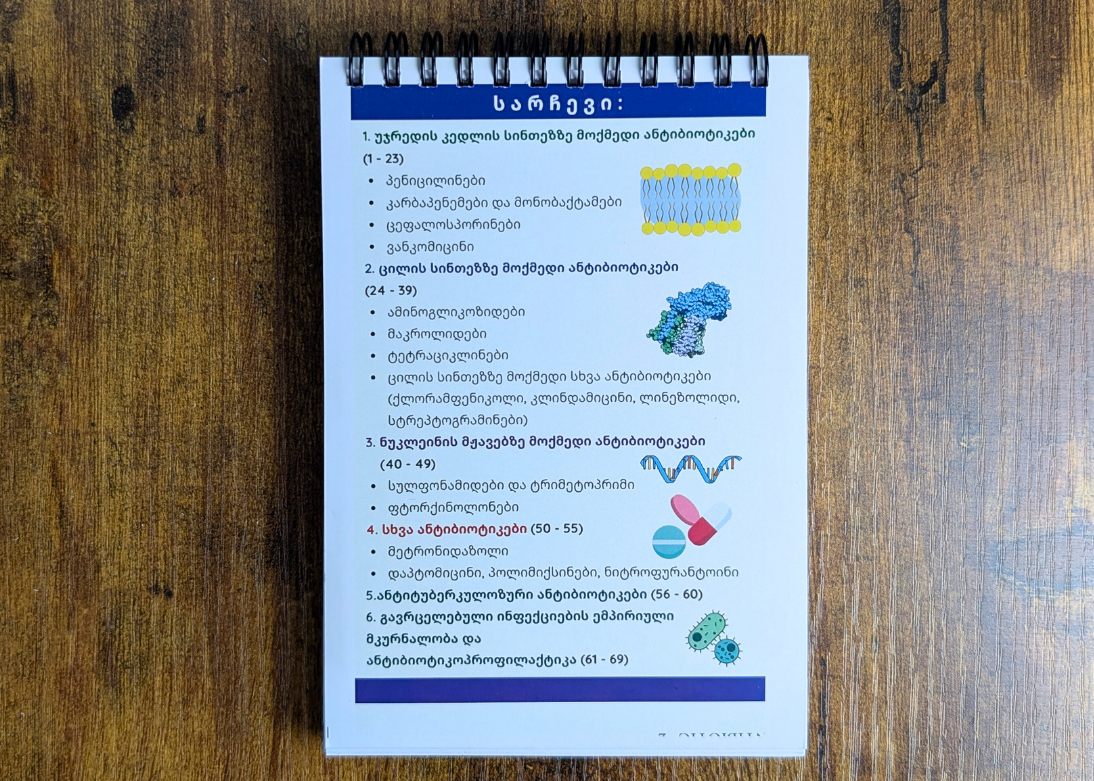 სარჩევი:
1. უჯრედის კედლის სინთეზზე მოქმედი ანტიბიოტიკები
(1 - 23)
• პენიცილინები
• კარბაპენემები და მონობაქტამები
• ცეფალოსპორინები
• ვანკომიცინი
2. ცილის სინთეზზე მოქმედი ანტიბიოტიკები
(24 - 39)
• ამინოგლიკოზიდები
• მაკროლიდები
• ტეტრაციკლინები
• ცილის სინთეზზე მოქმედი სხვა ანტიბიოტიკები
(ქლორამფენიკოლი, კლინდამიცინი, ლინეზოლიდი,
სტრეპტოგრამინები)
3. ნუკლეინის მჟავებზე მოქმედი ანტიბიოტიკები
(40 - 49)
• სულფონამიდები და ტრიმეტოპრიმი
• ფტორქინოლონები
4. სხვა ანტიბიოტიკები (50 - 55)
• მეტრონიდაზოლი
• დაპტომიცინი, პოლიმიქსინები, ნიტროფურანტოინი
5.ანტიტუბერკულოზური ანტიბიოტიკები (56 - 60)
6. გავრცელებული ინფექციების ემპირიული
მკურნალობა და
ანტიბიოტიკოპროფილაქტიკა (61 - 69)